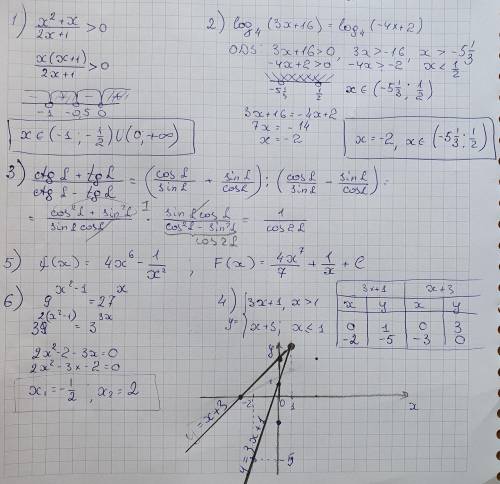 1) x²+x / 2x+1 > 0
x(x+1) / 2x+1 > 0
- + - +
-1 -0,5 0
x ∈ (-1; -1/2) ∪ (0; +∞)
2) log₄(3x+16) = log₄(-4x+2)
ODS: 3x+16>0, 3x>-16, x > -5 1/3
-4x+2>0, -4x>-2, x < 1/2
-5 1/3 1/2 x ∈ (-5 1/3; 1/2)
3x+16 = -4x+2
7x = -14
x = -2
x = -2, x ∈ (-5 1/3; 1/2)
3) ctg L + tg L / ctg L - tg L = (cos L / sin L + sin L / cos L) : (cos L / sin L - sin L / cos L) =
= cos²L + sin²L / sin L cos L · sin L cos L / cos²L - sin²L = 1 / cos2L
1
cos2L
5) f(x) = 4x⁶ - 1/x², F(x) = 4x⁷/7 + 1/x + C
6) 9^(x²-1) = 27^x
3^(2(x²-1)) = 3^(3x)
2x²-2-3x=0
2x²-3x-2=0
x₁ = -1/2; x₂ = 2
4) y = { 3x+1, x>1
x+3; x ≤ 1
3x+1 x+3
x y x y
0 1 0 3
-2 -5 -3 0
y
1
-2 0 1 x
y = x+3
y = 3x+1
-5